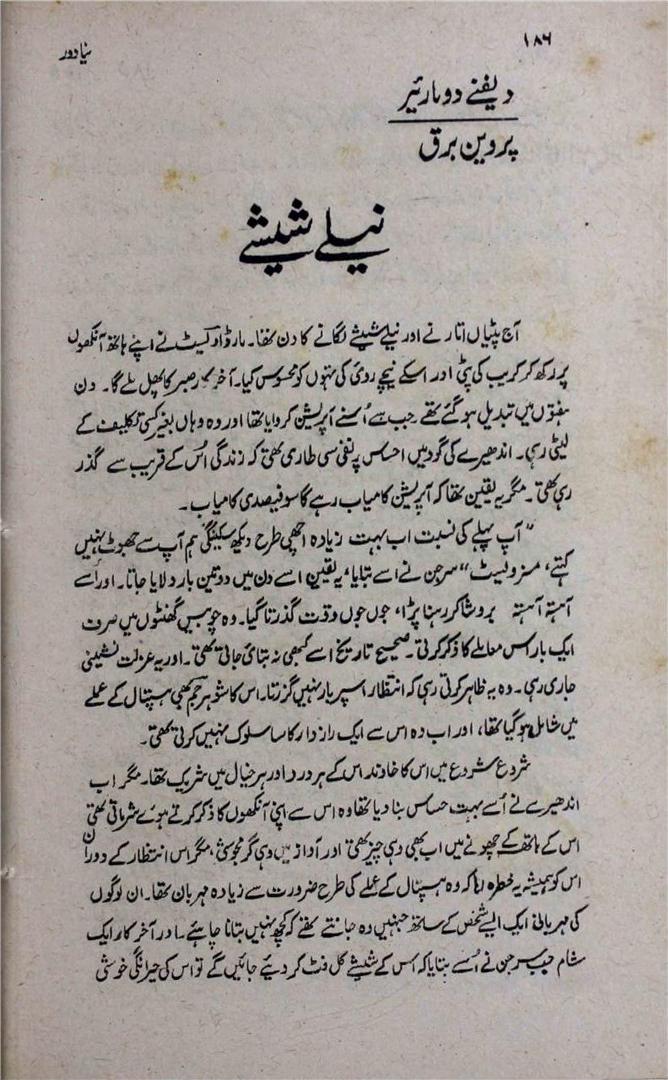 ۱۸۶
نیا دور
دیفنے دوماریئر
پروین برق
نیلے شیشے
آج پٹیاں اتارنے اور نیلے شیشے لگانے کا دن تھا۔ مارڈا ویسٹ نے اپنے ہاتھ آنکھوں
پر رکھ کر کریب کی پٹی اور اسکے نیچے روئی کی تہوں کو محسوس کیا۔ آخر کار صبر کا پھل ملے گا۔ دن
ہفتوں میں تبدیل ہو گئے تھے جب سے اُسنے آپریشن کروایا تھا اور وہ وہاں بغیر کسی تکلیف کے
لیٹی رہی۔ اندھیرے کی گود میں احساس پر نفی سی طاری تھی کہ زندگی اس کے قریب سے گذر
رہی تھی۔ مگر یہ یقین تھا کہ آپریشن کامیاب رہے گا سو فیصدی کامیاب۔
"آپ پہلے کی نسبت اب بہت زیادہ اچھی طرح دیکھ سکینگی ہم آپ سے جھوٹ نہیں
کہتے، مسز ویسٹ" سرجن نے اسے بتایا، یہ یقین اسے دن میں دو تین بار دلایا جاتا۔ اور اسے
آہستہ آہستہ بروشاکر رہنا پڑا، جوں جوں وقت گذرتا گیا۔ وہ چوبیس گھنٹوں میں صرف
ایک بار اس معاملے کا ذکر کرتی۔ صحیح تاریخ اسے کبھی نہ بتائی جاتی تھی۔ اور یہ عزلت نشینی
جاری رہی۔ وہ یہ ظاہر کرتی رہی کہ انتظار اسپر بار نہیں گزرتا۔ اس کا شوہر جم بھی ہسپتال کے عملے
میں شامل ہو گیا تھا، اور اب وہ اس سے ایک رازدار کا سا سلوک نہیں کرتی تھی۔
شروع شروع میں اس کا خاوند اس کے ہر درد اور ہر خیال میں شریک تھا۔ مگر اب
اندھیرے نے اُسے بہت حساس بنا دیا تھا وہ اس سے اپنی آنکھوں کا ذکر کرتے ہوئے شرماتی تھی
اس کے ہاتھ کے چھونے میں اب بھی وہی چیز تھی اور آواز میں وہی گرمجوشی، مگر اس انتظار کے دوران
اس کو ہمیشہ یہ خطرہ رہا کہ وہ ہسپتال کے عملے کی طرح ضرورت سے زیادہ مہربان تھا۔ ان لوگوں
کی مہربانی ایک ایسے شخص کے ساتھ جنہیں وہ جانتے تھے کہ کچھ نہیں بتانا چاہئے۔ اور آخر کار ایک
شام جب سرجن نے اُسے بتایا کہ اس کے شیشے کل فٹ کر دیئے جائیں گے تو اس کی حیرانگی خوشی